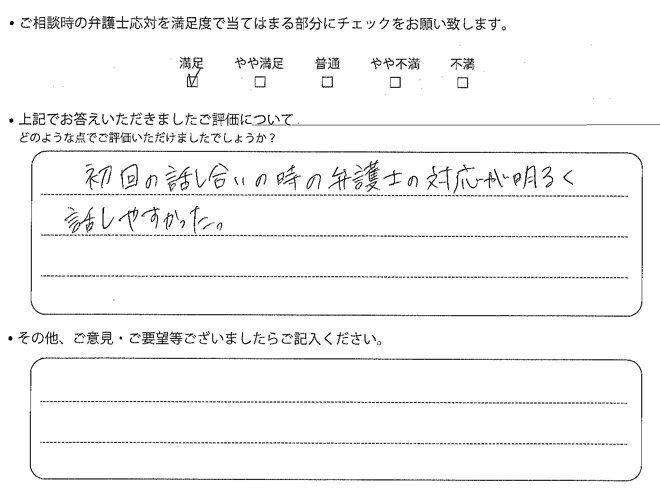 ・ご相談時の弁護士応対を満足度で当てはまる部分にチェックをお願い致します。
満足 やや満足 普通 やや不満 不満
☑ □ □ □ □
・上記でお答えいただきましたご評価について
どのような点でご評価いただけましたでしょうか？
初回の話し合いの時の弁護士の対応が明るく
話しやすかった。
・その他、ご意見・ご要望等ございましたらご記入ください。